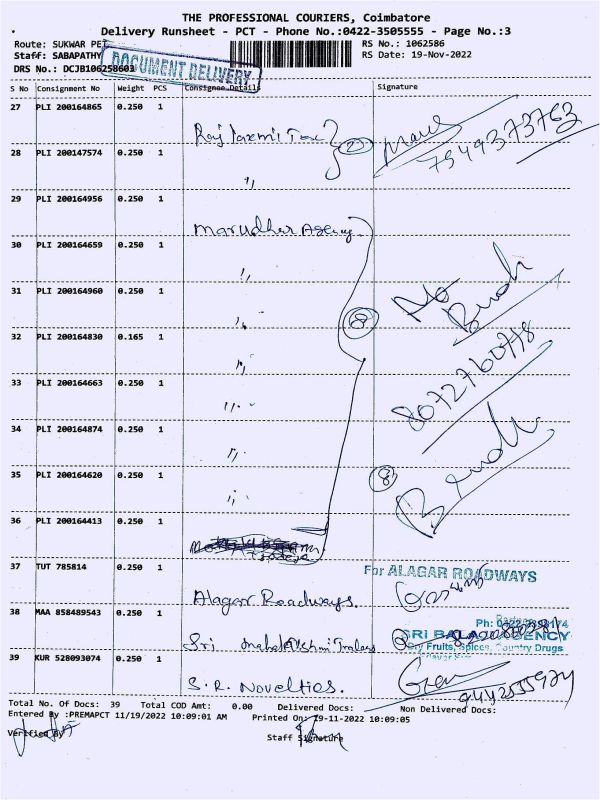 THE PROFESSIONAL COURIERS, Coimbatore
Delivery Runsheet - PCT - Phone No.:0422-3505555 - Page No.:3
Route: SUKWAR PET
RS No.: 1062586
Staff: SABAPATHY
RS Date: 19-Nov-2022
DRS No.: DCJB106258603
DOCUMENT DELIVERY
S No Consignment No Weight PCS Consignee Details Signature
27 PLI 200164865 0.250 1
28 PLI 200147574 0.250 1
7549373763
29 PLI 200164956 0.250 1
Marudhar Agency
30 PLI 200164659 0.250 1
31 PLI 200164960 0.250 1
32 PLI 200164830 0.165 1
33 PLI 200164663 0.250 1
8072760778
34 PLI 200164874 0.250 1
35 PLI 200164620 0.250 1
8
36 PLI 200164413 0.250 1
37 TUT 785814 0.250 1
For ALAGAR ROADWAYS
Alagar Roadways.
38 MAA 858489543 0.250 1
SRI BALAJI AGENCY
Dry Fruits, Spices, Country Drugs
Sri Mahalakshmi Traders
39 KUR 528093074 0.250 1
S.R. Novelties.
Total No. Of Docs: 39 Total COD Amt: 0.00 Delivered Docs: Non Delivered Docs:
Entered By :PREMAPCT 11/19/2022 10:09:01 AM Printed On: 19-11-2022 10:09:05
Verified By
Staff Signature